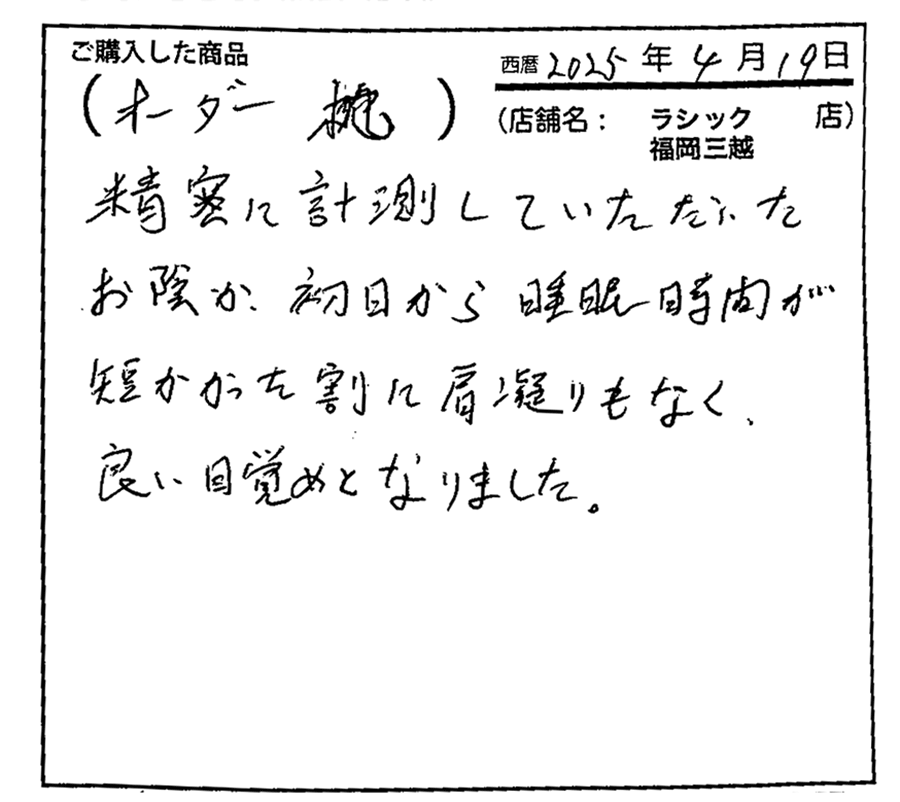 ご購入した商品
西暦 2025 年 4 月 19 日
(オーダー 枕)
(店舗名: ラシック 店)
福岡三越
精密に計測していただいた
お陰か、初日から睡眠時間が
短かかった割に肩凝りもなく、
良い目覚めとなりました。